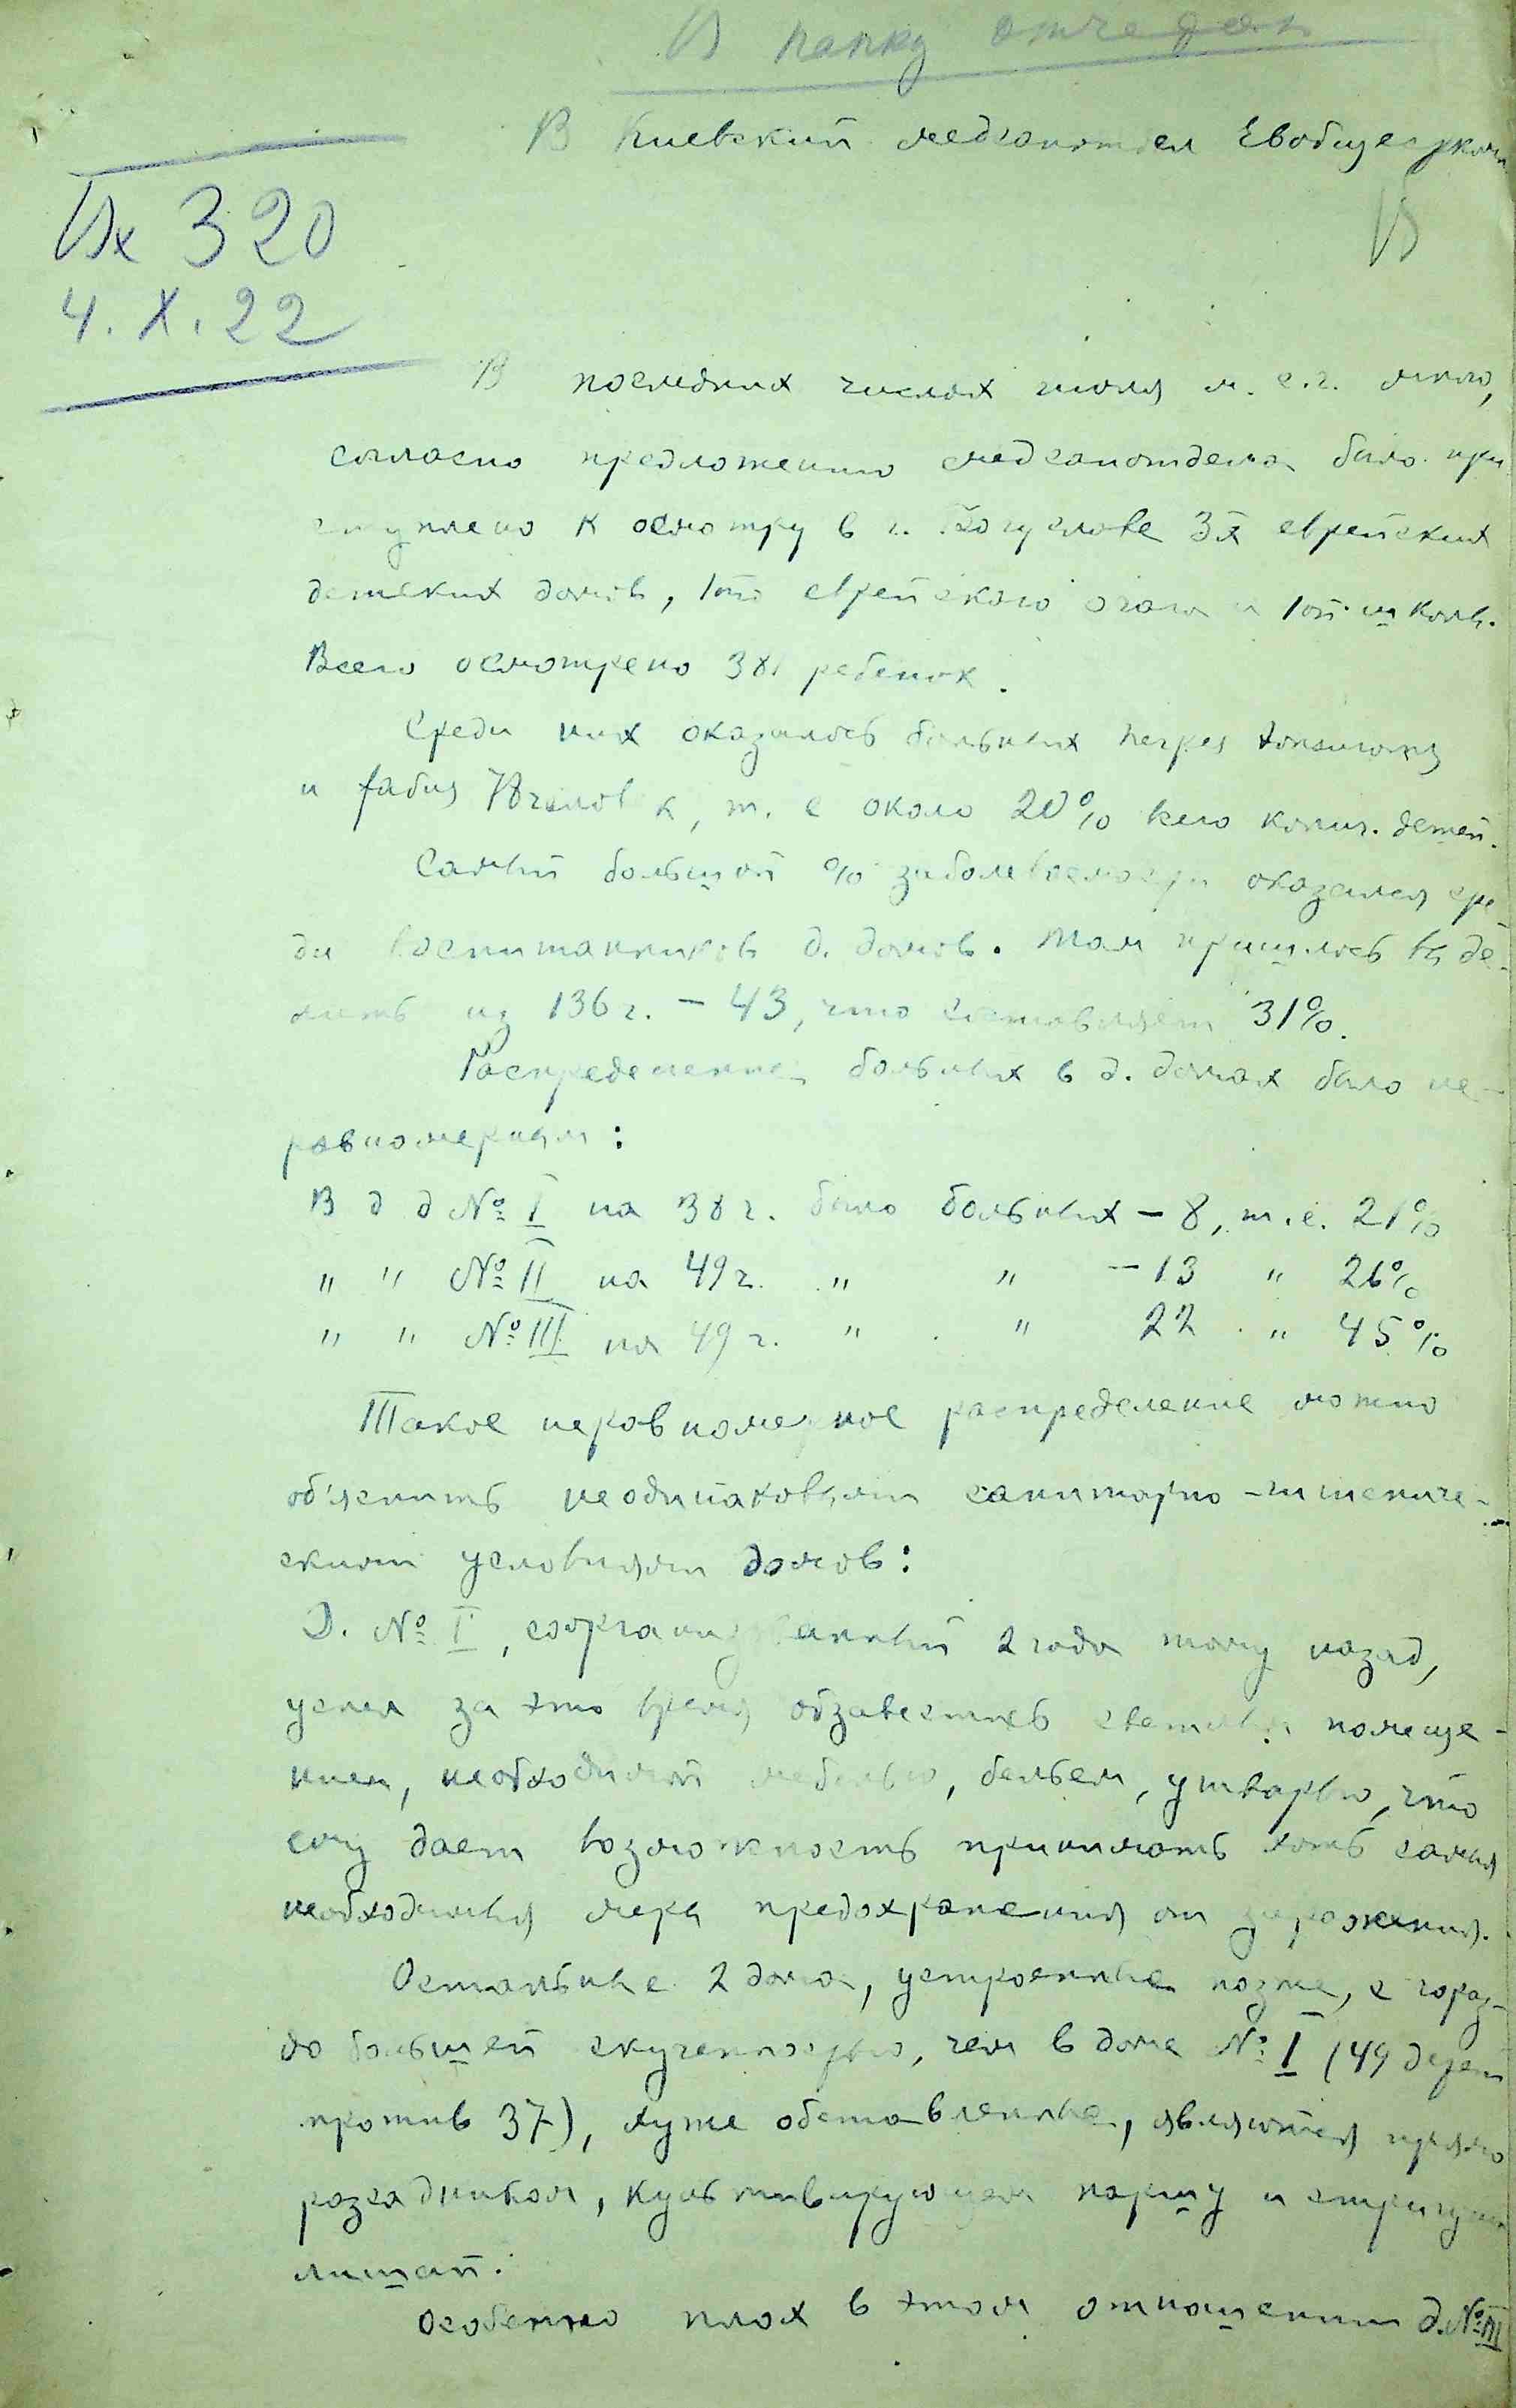 В папку отчедел
В Киевский медсанотдел Евобщесткома
В
Вх 320
4. X. 22
В последних числах июля м. с.г. мною,
согласно предложению медсанотдела было при
ступлено к осмотру в г. Богуславе 3х еврейских
детских домов, 1го еврейского очага и 1ой школы.
Всего осмотрено 381 ребенок.
Среди них оказалось больных herpes tonsurans
и favus 78 человек, т. е около 20% всего колич. детей.
Самый большой % заболеваемости оказался сре-
ди воспитанников д. домов. Там пришлось выде-
лить из 136 ч. – 43, что составляет 31%.
Распределение больных в д. домах было не-
равномерным:
В д д № I на 38 ч. было больных – 8, т.е. 21%
" " № II на 49 ч. " " – 13 " 26%
" " № III на 49 ч. " " 22 " 45%
Такое неравномерное распределение можно
об'яснить неодинаковыми санитарно-гигиениче-
ским условиям домов:
Д. № I, сооргани анный 2 года тому назад,
успел за это время обзавестись светлым помеще-
нием, необходимой мебелью, бельем, утварью, что
ему дает возможность принимать хоть самыя
необходимыя меры предохранения от заражения.
Остальные 2 дома, устроенные позже, с гораз-
до большей скученностью, чем в доме № I (49 детей
против 37), хуже обставленные, являются прямо
розсадником, культивирующем паршу и стригущий
лишай.
Особенно плох в этом отношении д. № III